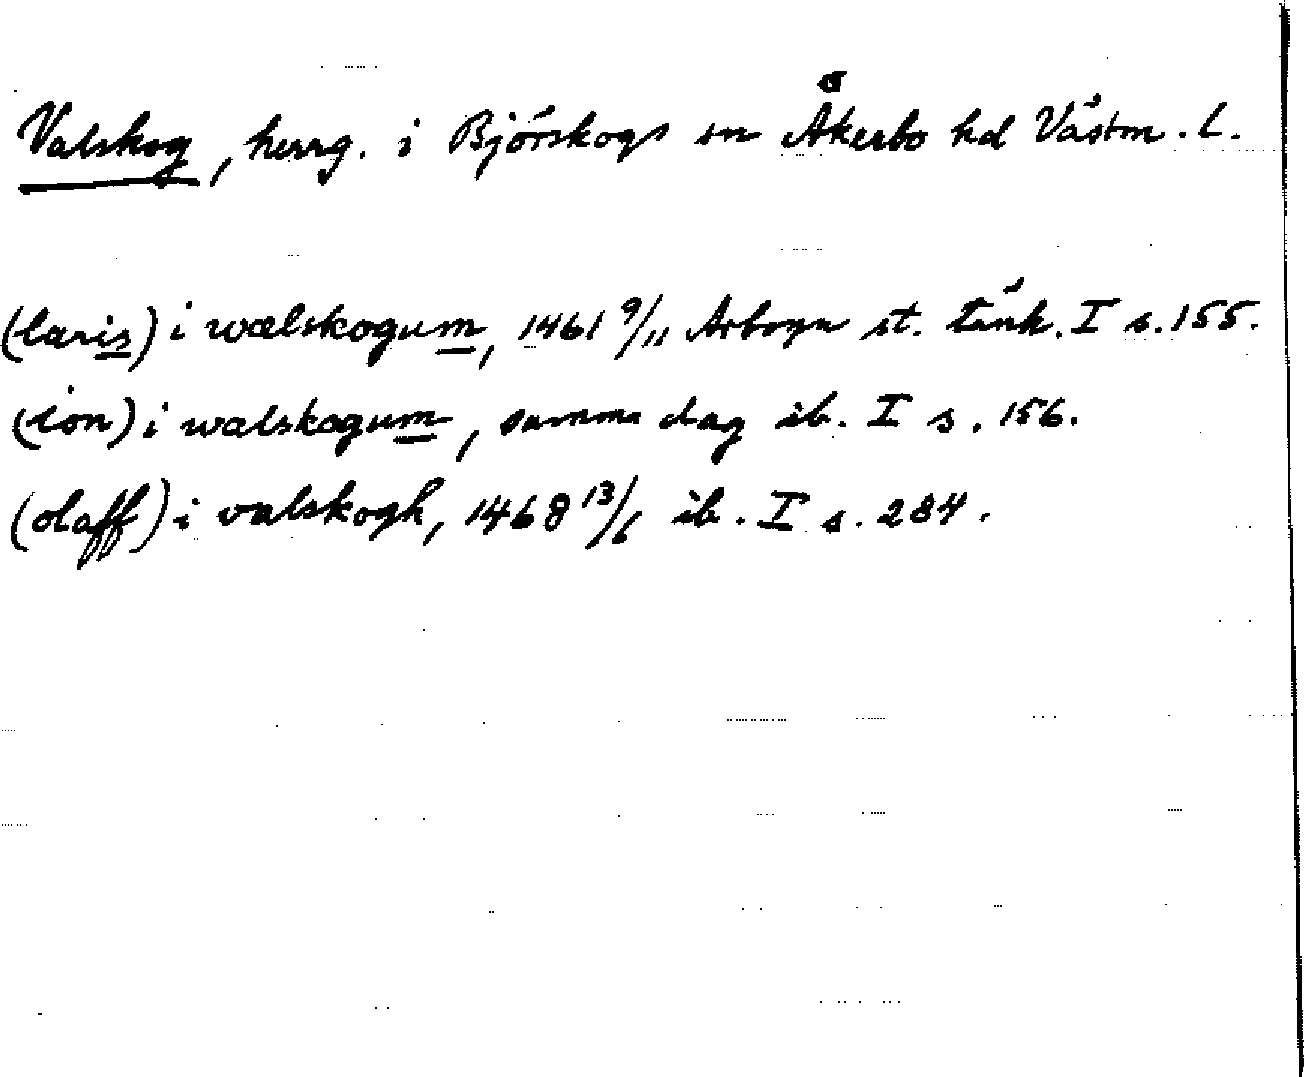 Valskog, herrg. i Björskogs sn Åkerbo hd Västm. l.
(laris) i walskogum, 1461 9/11 Arboga st. tänk. I s. 155.
(ion) i walskogum, samma dag ib. I s. 156.
(olaff) i valskogh, 1468 13/6 ib. I s. 284.